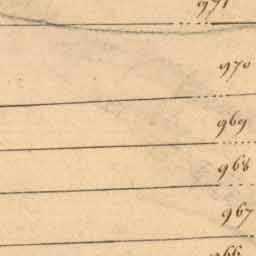 971
970
969
968
967
966